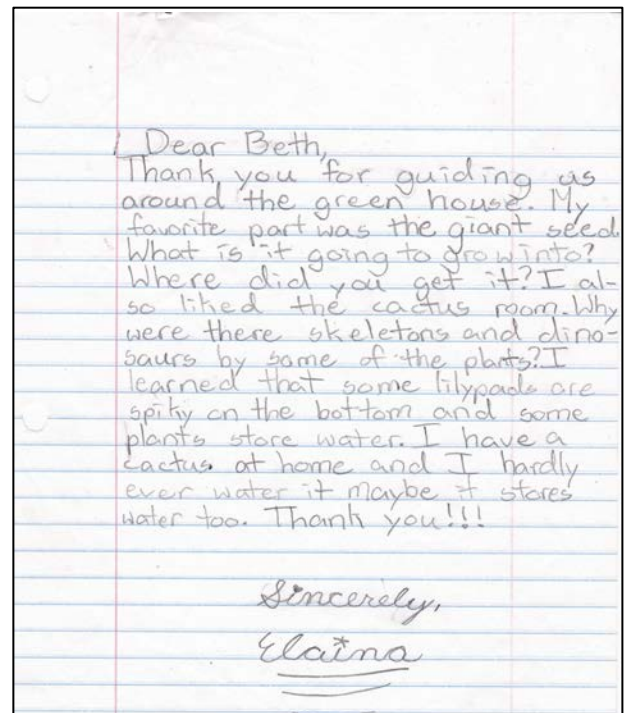 Dear Beth,
Thank you for guiding us
around the green house. My
favorite part was the giant seed.
What is it going to grow into?
Where did you get it? I al-
so liked the cactus room. Why
were there skeletons and dino-
saurs by some of the plants? I
learned that some lilypads are
spiky on the bottom and some
plants store water. I have a
cactus at home and I hardly
ever water it maybe it stores
water too. Thank you!!!
Sincerely,
Elaina